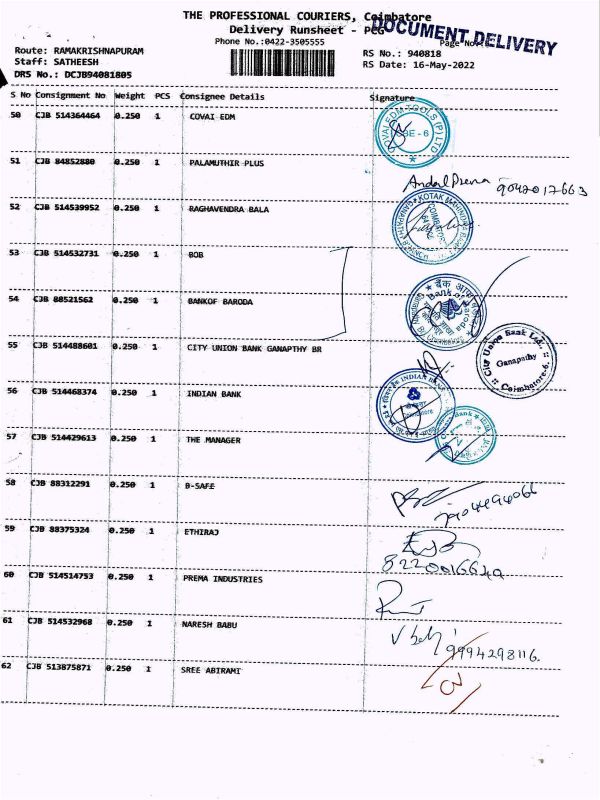 THE PROFESSIONAL COURIERS, Coimbatore
Delivery Runsheet - PCG
DOCUMENT DELIVERY
Phone No.:0422-3505555
Page No.:
Route: RAMAKRISHNAPURAM
RS No.: 940818
Staff: SATHEESH
RS Date: 16-May-2022
DRS No.: DCJB94081805
S No Consignment No Weight PCS Consignee Details Signature
50 CJB 514364464 0.250 1 COVAI EDM
COVAI EDM TOOLS (P) LTD
CBE - 6
51 CJB 84852880 0.250 1 PALAMUTHIR PLUS
9042017663
52 CJB 514539952 0.250 1 RAGHAVENDRA BALA
KOTAK MAHINDRA BANK
53 CJB 514532731 0.250 1 BOB
54 CJB 88521562 0.250 1 BANKOF BARODA
Bank of Baroda
55 CJB 514488601 0.250 1 CITY UNION BANK GANAPTHY BR
City Union Bank Ltd.
Ganapathy
Coimbatore-6.
56 CJB 514468374 0.250 1 INDIAN BANK
INDIAN BANK
57 CJB 514429613 0.250 1 THE MANAGER
58 CJB 88312291 0.250 1 B-SAFE
59 CJB 88375324 0.250 1 ETHIRAJ
60 CJB 514514753 0.250 1 PREMA INDUSTRIES
61 CJB 514532968 0.250 1 NARESH BABU
9994298116.
62 CJB 513875871 0.250 1 SREE ABIRAMI